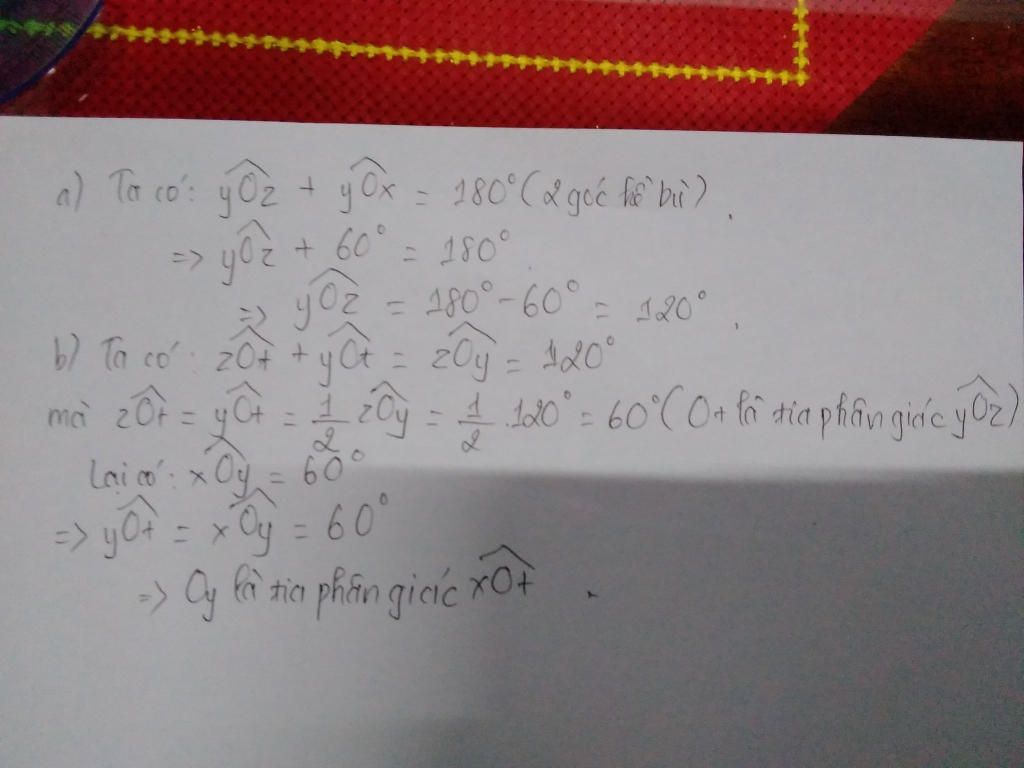 a) Ta có: yÔz + yÔx = 180° (2 góc kề bù).
=> yÔz + 60° = 180°
=> yÔz = 180° - 60° = 120°.
b) Ta có: zÔt + yÔt = zÔy = 120°
mà zÔt = yÔt = 1/2 zÔy = 1/2 .120° = 60° (Ot là tia phân giác yÔz)
Lại có: xÔy = 60°
=> yÔt = xÔy = 60°
=> Oy là tia phân giác xÔt .